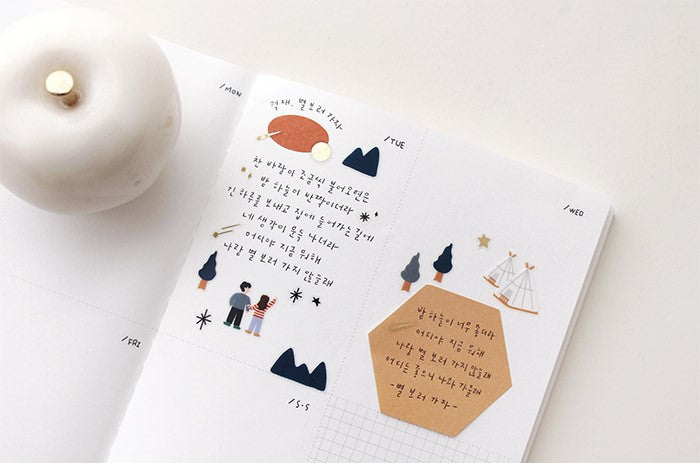 /MON
적재. 별 보러 가자
/TUE
찬 바람이 조금씩 불어오면은
밤 하늘이 반짝이더라
긴 하루를 보내고 집에 들어가는길에
네 생각이 문득 나더라
어디야 지금 뭐해
나랑 별 보러 가지 않을래
/WED
밤 하늘이 너무 좋더라
어디야 지금 뭐해
나랑 별 보러 가지 않을래
어디든 좋으니 나와 가줄래
- 별 보러 가자 -
/FRI
/S.S